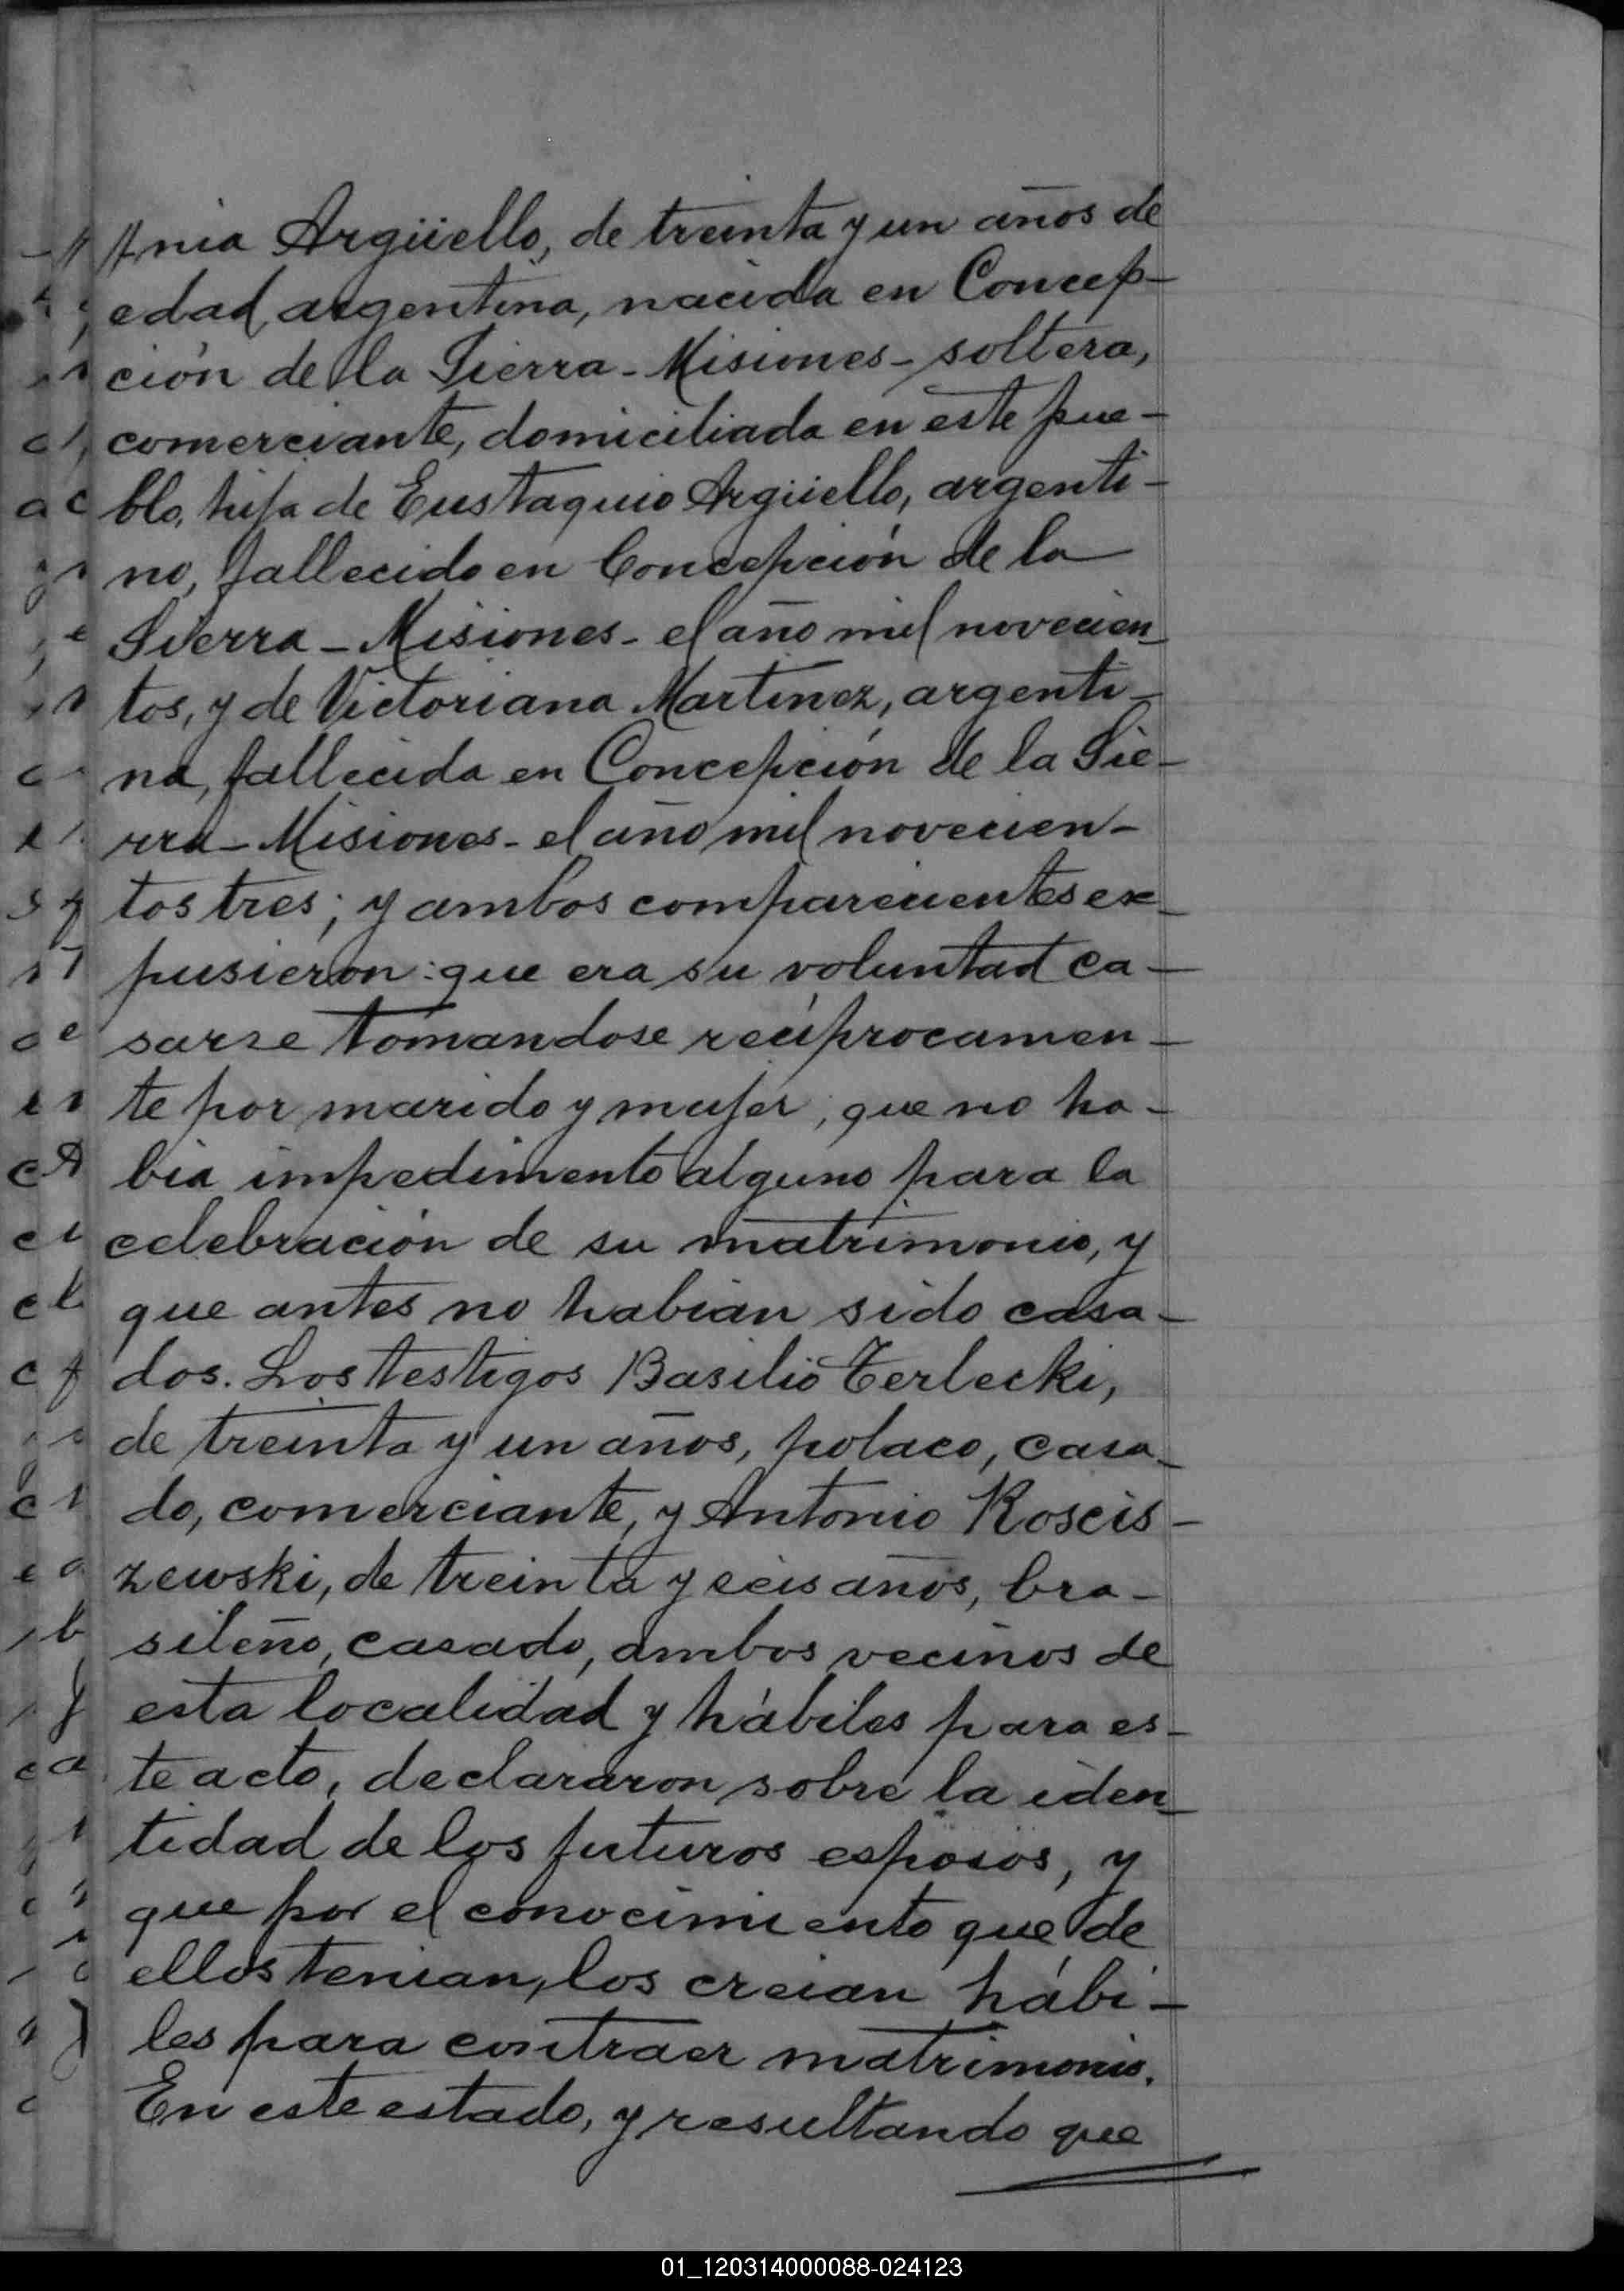 nia Argüello, de treinta y un años de
edad, argentina, nacida en Concep-
ción de la Sierra - Misiones - soltera,
comerciante, domiciliada en este pue-
blo, hija de Eustaquio Argüello, argenti-
no, fallecido en Concepción de la
Sierra - Misiones - el año mil novecien-
tos, y de Victoriana Martinez, argenti-
na, fallecida en Concepción de la Sie-
rra - Misiones - el año mil novecien-
tos tres; y ambos comparecientes ex-
pusieron: que era su voluntad ca-
sarse tomandose recíprocamen-
te por marido y mujer, que no ha-
bia impedimento alguno para la
celebración de su matrimonio, y
que antes no habian sido casa-
dos. Los testigos Basilio Terlecki,
de treinta y un años, polaco, casa-
do, comerciante, y Antonio Roscis-
zewski, de treinta y seis años, bra-
sileño, casado, ambos vecinos de
esta localidad y hábiles para es-
te acto, declararon sobre la iden-
tidad de los futuros esposos, y
que por el conocimiento que de
ellos tenian, los creian hábi-
les para contraer matrimonio.
En este estado, y resultando que
01_120314000088-024123